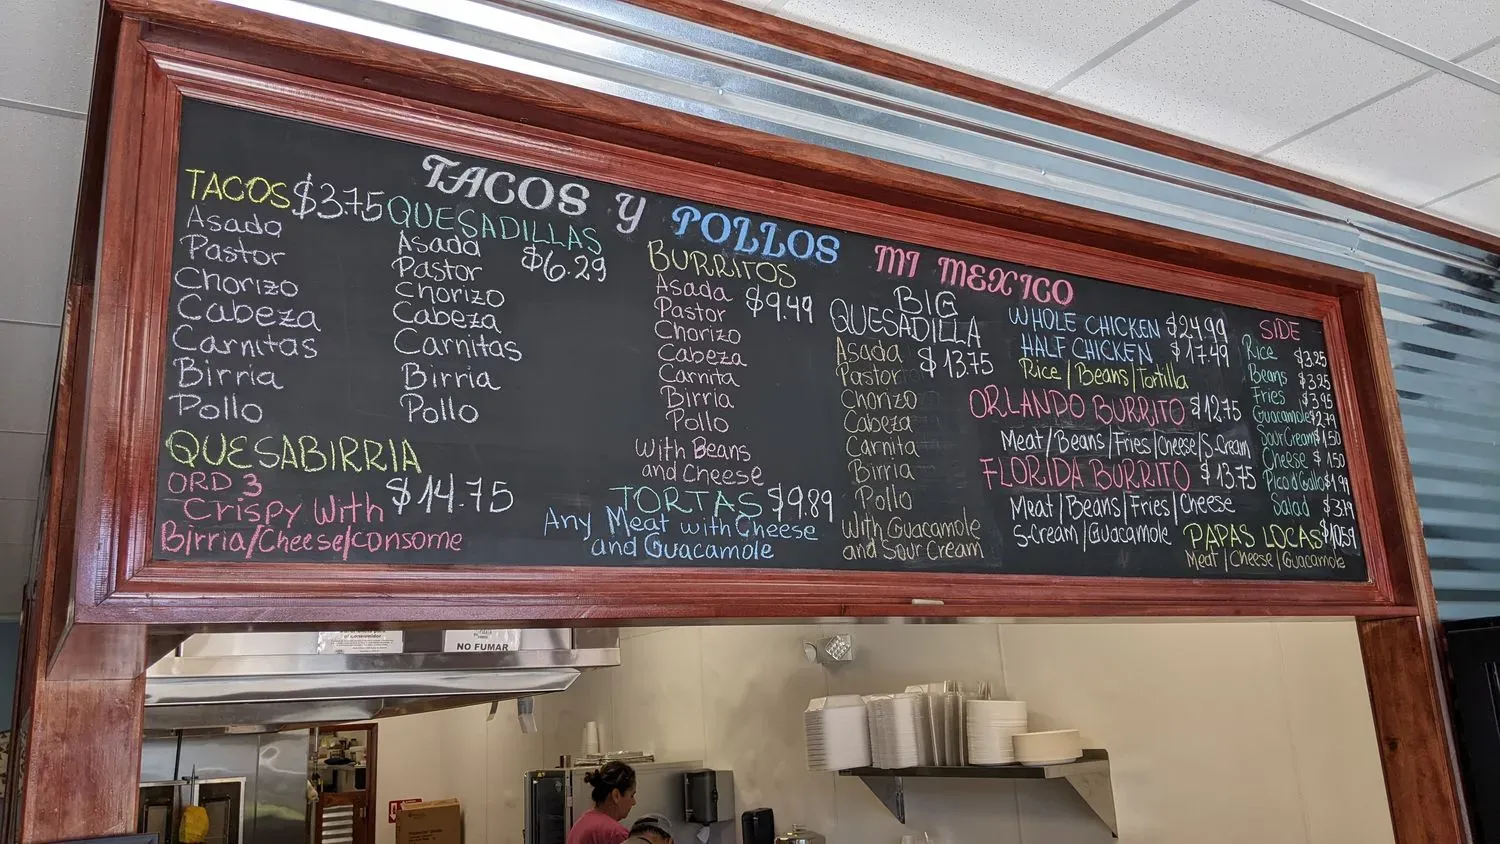 TACOS Y POLLOS MI MEXICO
TACOS $3.75
Asada
Pastor
Chorizo
Cabeza
Carnitas
Birria
Pollo
QUESABIRRIA
ORD 3
Crispy With $14.75
Birria/Cheese/consome
QUESADILLAS
Asada $6.29
Pastor
Chorizo
Cabeza
Carnitas
Birria
Pollo
BURRITOS
Asada $9.49
Pastor
Chorizo
Cabeza
Carnita
Birria
Pollo
With Beans
and Cheese
TORTAS $9.89
Any Meat with Cheese
and Guacamole
BIG
QUESADILLA
Asada $13.75
Pastor
Chorizo
Cabeza
Carnita
Birria
Pollo
With Guacamole
and Sour Cream
WHOLE CHICKEN $24.99
HALF CHICKEN $17.49
Rice/Beans/Tortilla
ORLANDO BURRITO $12.75
Meat/Beans/Fries/Cheese/S.Cream
FLORIDA BURRITO $13.75
Meat/Beans/Fries/Cheese
S-Cream/Guacamole
SIDE
Rice $3.25
Beans $3.25
Fries $3.95
Guacamole $2.79
Sour Cream $1.50
Cheese $1.50
Pico d'Gallo $1.99
Salad
PAPAS LOCAS $10.59
Meat/Cheese/Guacamole
NO FUMAR